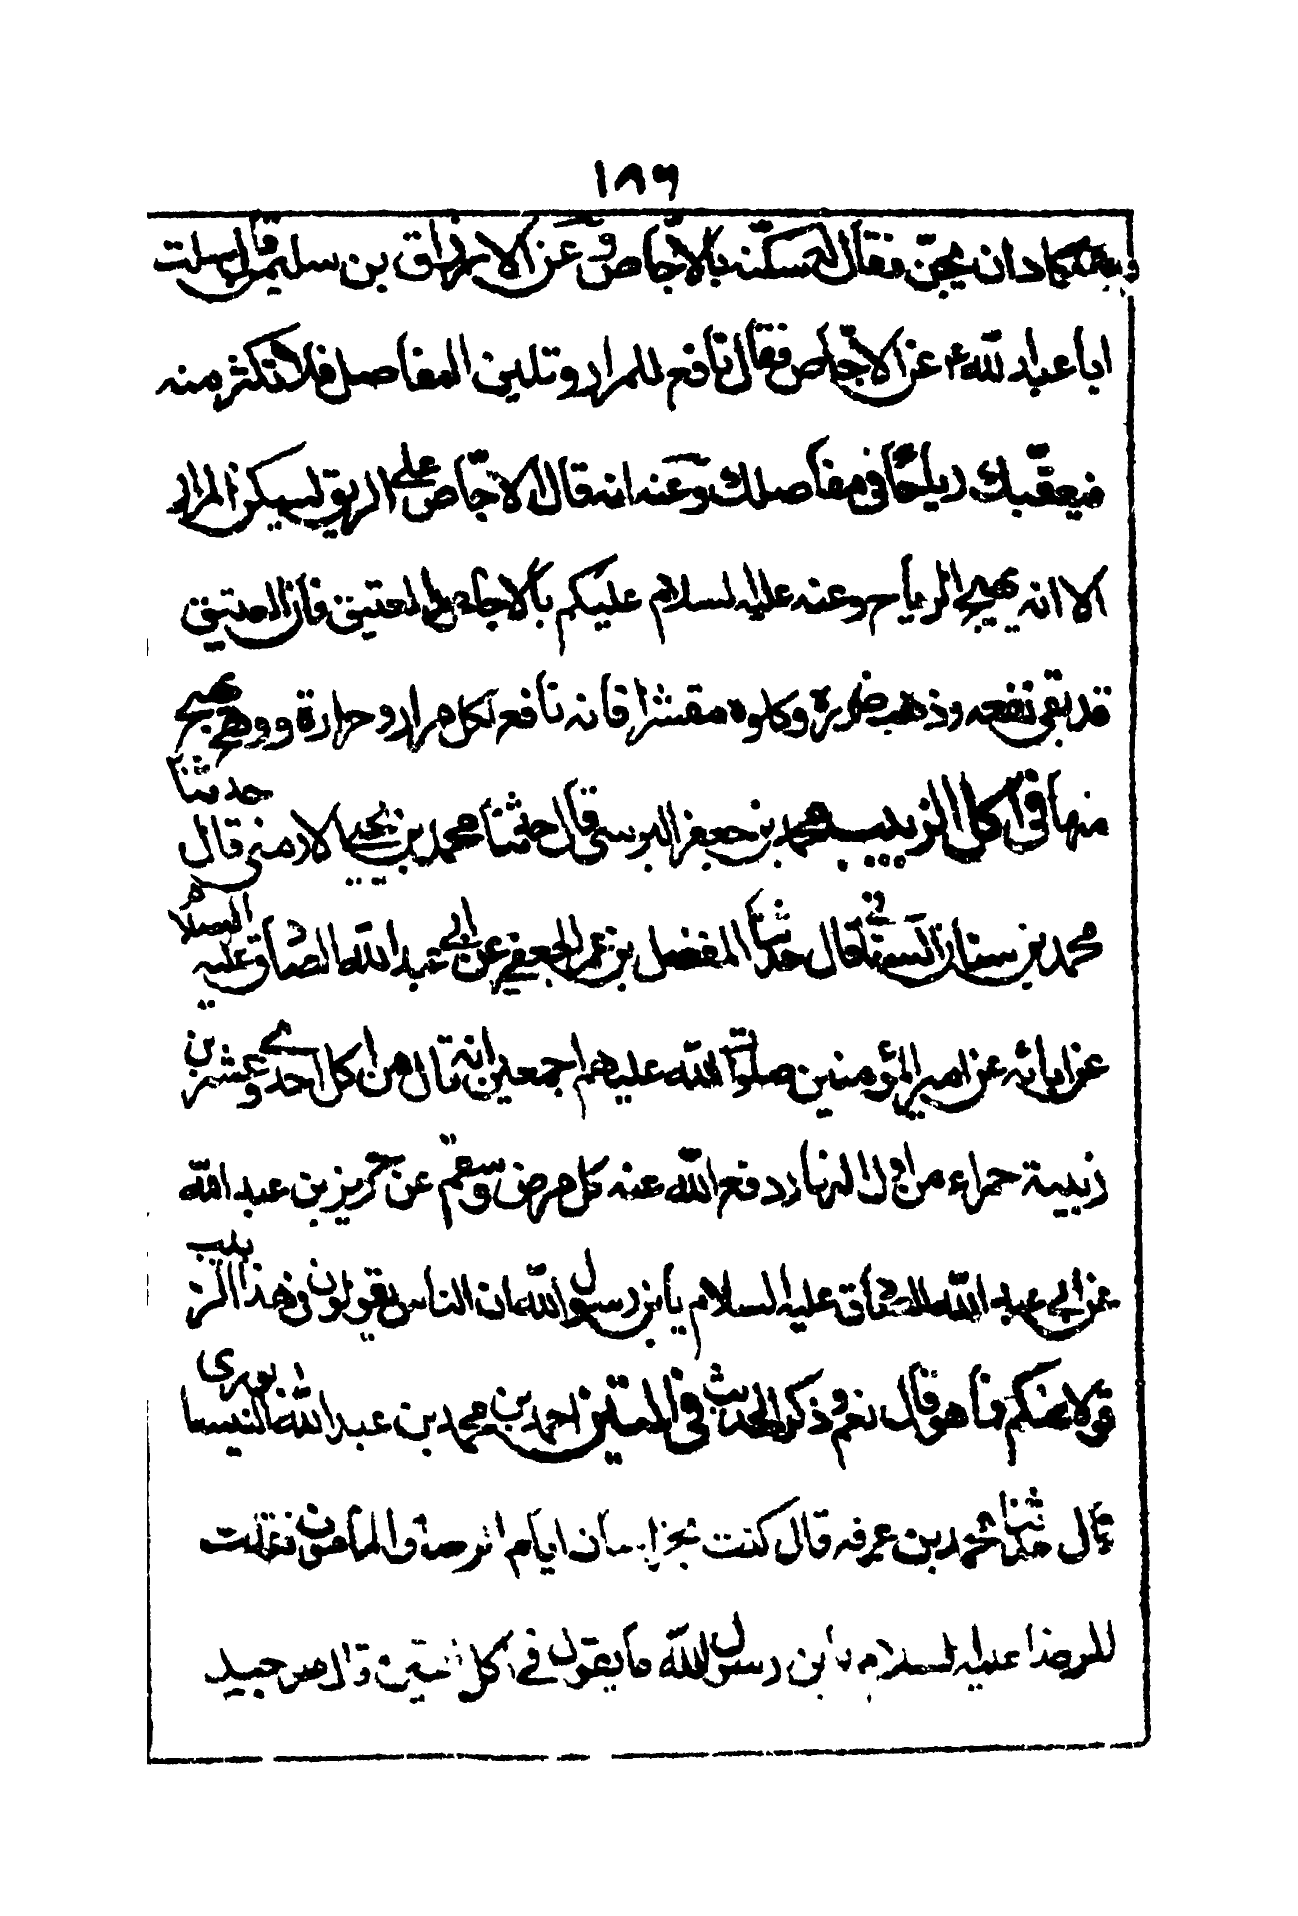 ١٨٦
كاد ان يجن فقال له سكنه بالاجاص وعن الازرق بن سليم قال سالت
ابا عبد الله ع عن الاجاص فقال نافع للمرار وتلين المفاصل فلا تكثر منه
فيعقبك رياحا في مفاصلك وعنه انه قال الاجاص على الريق ليسكن المرار
الا انه يهيج الرياح وعنه عليه السلام عليكم بالاجاص العتيق فان العتيق
قد بقى نفعه وذهب ضرره وكلوه مقشرا فانه نافع لكل مرار وحرارة ووهج يهيج
منها في اكل الزبيب محمد بن جعفر البرسى قال حدثنا محمد بن يحيى الارمنى قال حدثنا
محمد بن سنان السنانى قال حدثنا المفضل بن عمر الجعفي عن ابي عبد الله الصادق عليه السلام
عن ابائه عن امير المؤمنين صلوات الله عليهم اجمعين انه قال من اكل احدى وعشرين
زبيبة حمراء من اول النهار دفع الله عنه كل مرض وسقم عن حريز بن عبد الله
عن ابي عبد الله الصادق عليه السلام يا بن رسول الله ان الناس يقولون في هذا الزبيب
قولا عنكم فما هو قال نعم وذكر الحديث في التين احمد بن محمد بن عبد الله النيسابورى
قال حدثنا محمد بن عرفه قال كنت بخراسان ايام الرضا والمامون فقلت
للرضا عليه السلام يا بن رسول الله ما يقول في اكل التين قال هو جيد